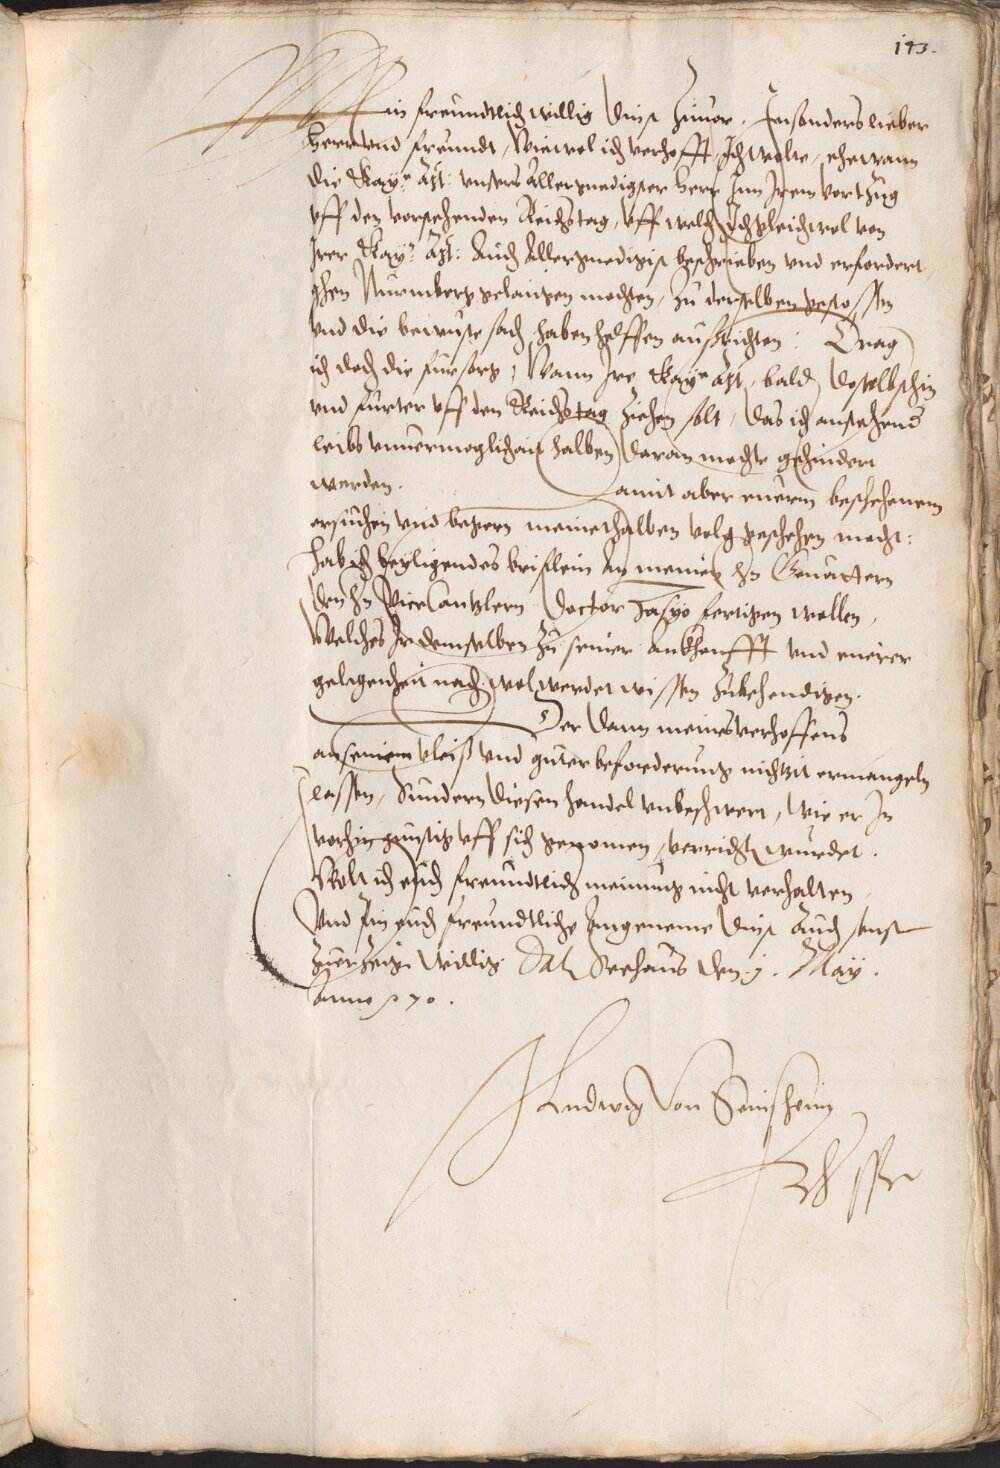 193.
Mein freundtlich willig dinst zuuor. Insonders lieber
Herr vnd freundt, Wiewol ich verhofft, Ich wolte, ehe wann
die Kay: Mt: vnsers Allergnedigster Herr Inn Irem vortzug
vff den vorstehenden Reichstag, vff welch Ich gleichwol von
Irer Kay: Mt: Auch Allergnedigist beschrieben vnd erfordert
ghen Nurmberg gelangen mochten, zu derselben gestossen
vnd die bewuste sach haben helffen außrichten: Trag
ich doch die fürsorg, Wann Ire Kay Mt bald doselbsthin
vnd fürter vff den Reichstag ziehen solt, das ich anstehends
leibs vnuermoglichait halben daran mochte gehindert
werden. Damit aber euerm beschehenem
ersuchen vnd begern meinethalben volg geschehen mocht:
Hab ich beyligendes brifflein an meinen Hn Geuattern
den Hn Vicecantzlern Doctor Zasyo fertigen wollen,
Welches Ir demselben zu seiner ankhunfft vnd eurer
gelegenheit nach wol werdet wissen zubehendigen.
Der dann meines verhoffens
an seinem vleiß vnd guter beforderung nichtzit ermangeln
lassen, Sundern diesen handel vnbeschwert, wie er In
vorhin gunstig vff sich genomen, verricht wurdet.
Wolt ich euch freundtlich meinung nicht verhalten,
Vnd bin euch freundtliche Angeneme dinst Auch sonst
zuertzeigen willig. Dat Seehaus den j. May.
Anno 70.
Ludwig von Seinsheim